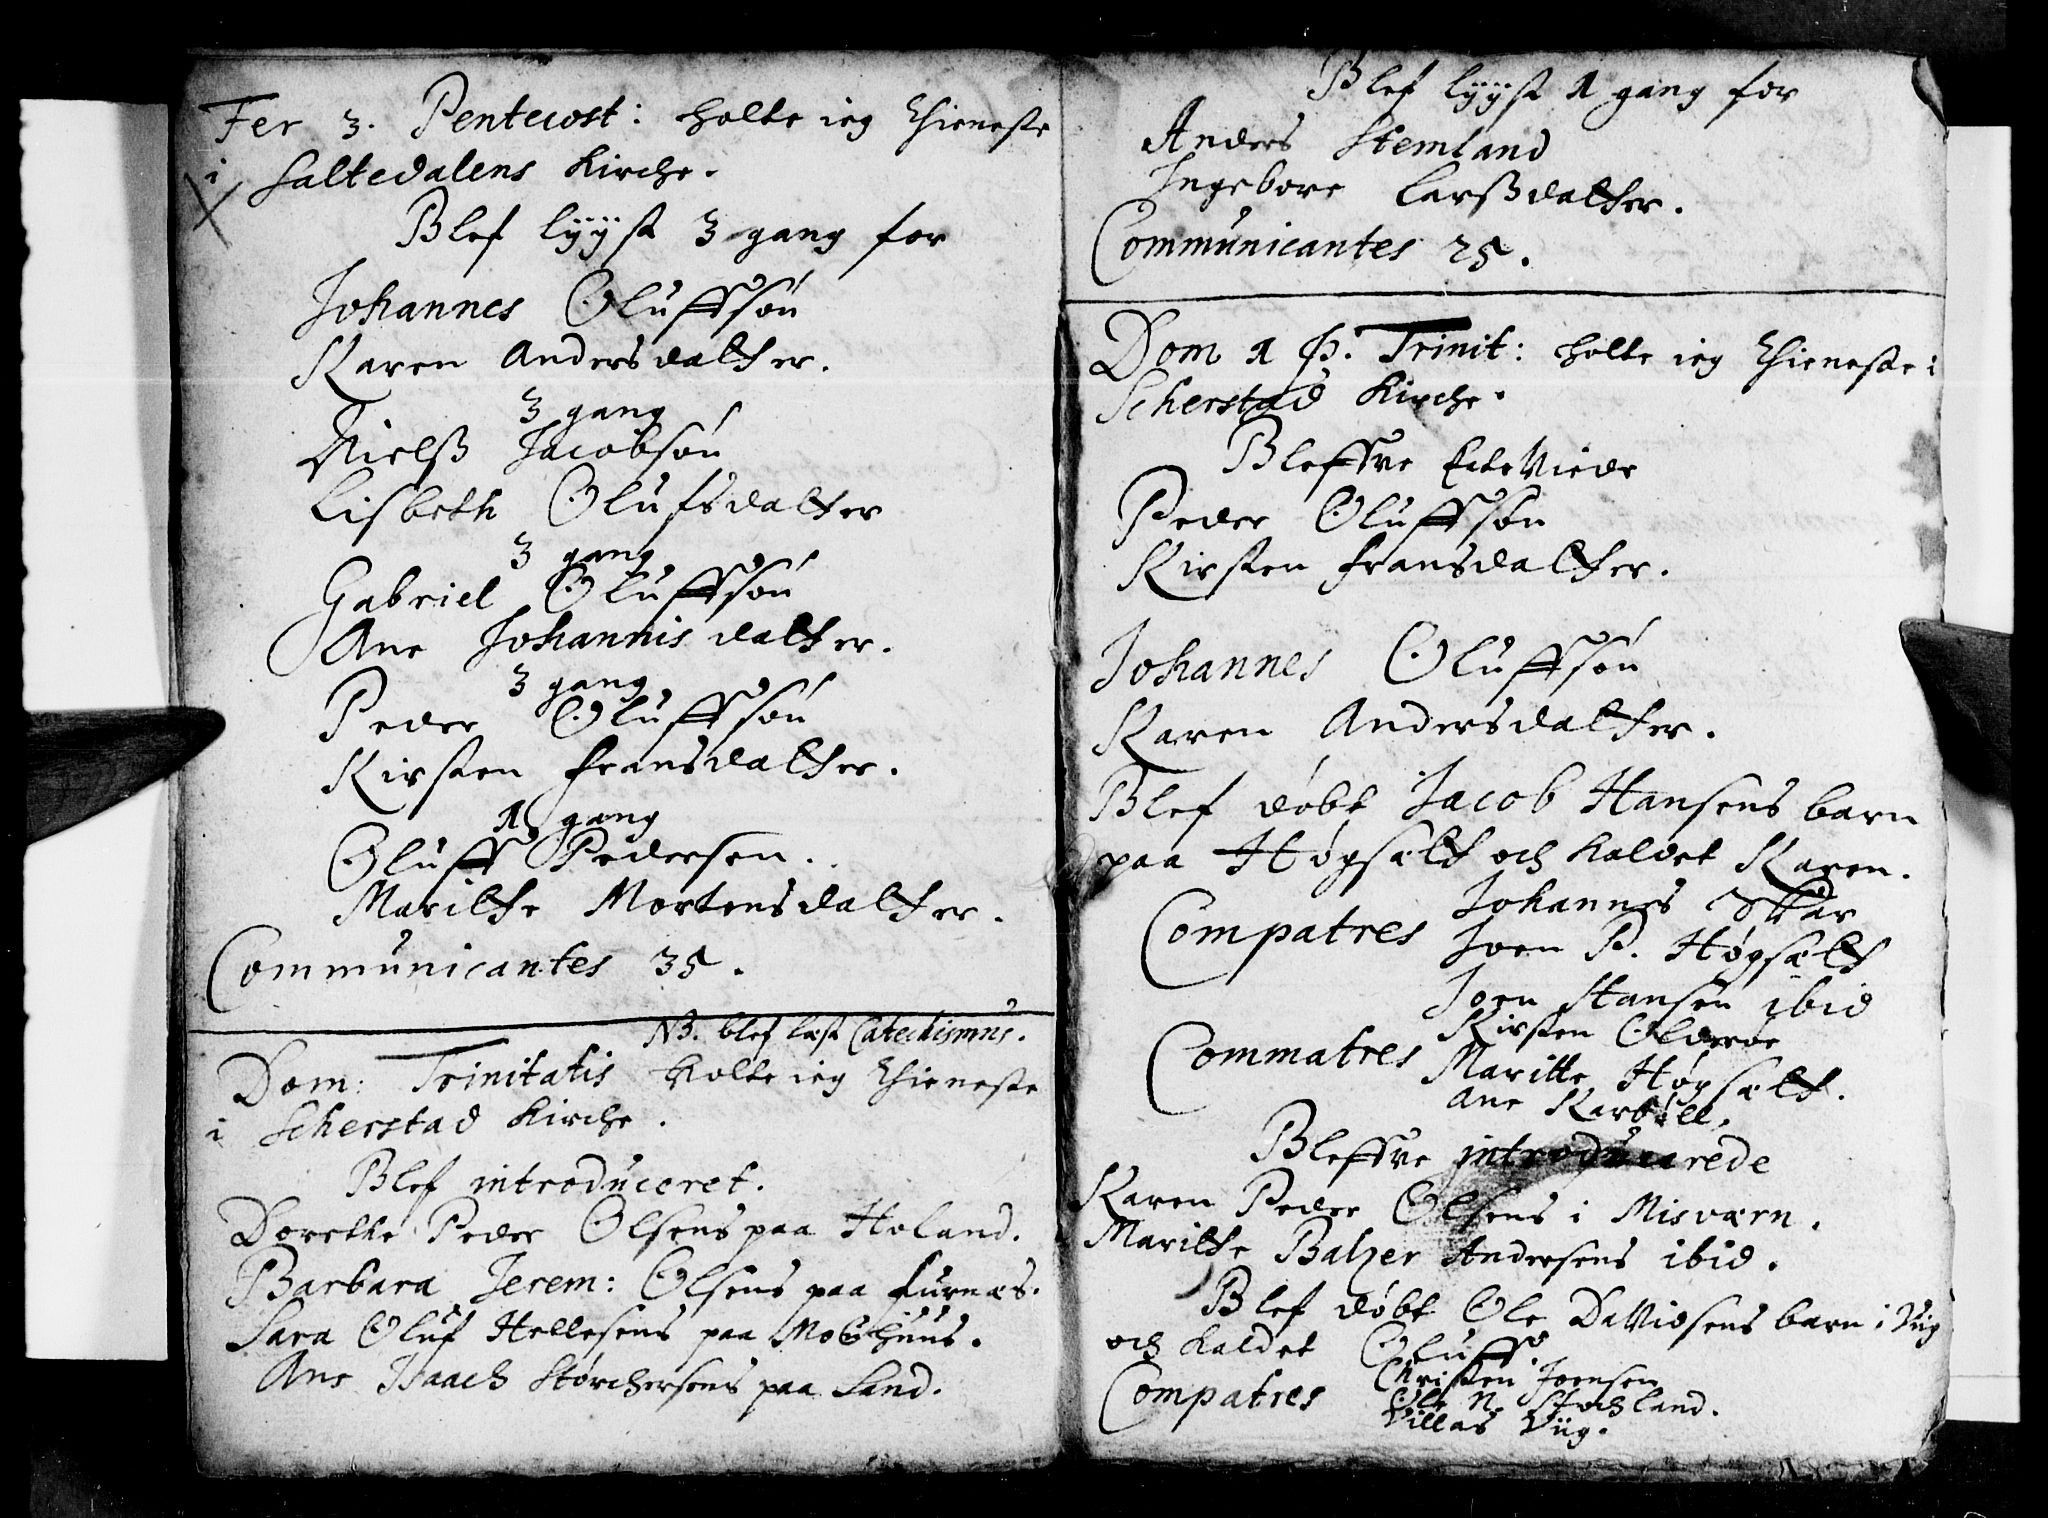 Fer 3. Pentecost: holte ieg thieneste
i Saltedalens Kirche.
Blef lyyst 3 gang for
Johannes Oluffsøn
Karen Andersdatter.
3 gang
Nielß Jacobsøn
Lisbeth Olufsdatter
3 gang
Gabriel Oluffsøn
Ane Johannisdatter.
3 gang
Peder Oluffsøn
Kirsten Fransdatter.
1 gang
Oluff Pedersen.
Maritte Mortensdatter.
Communicantes 35.
NB. blef læst Catechismus.
Dom: Trinitatis holte ieg thieneste
i Scherstad Kirche.
Blef introduceret.
Dorethe Peder Olsens paa Holand.
Barbara Jerem: Olsens paa Furnæs.
Sara Oluf Hellesens paa Mobchuus.
Ane Isaach Størchersens paa Sand.
Blef lyyst 1 gang for
Anders Stemland
Ingebore Larßdatter.
Communicantes 25.
Dom 1 P. Trinit: holte ieg thieneste i
Scherstad Kirche.
Bleffve Ecteviede
Peder Oluffsøn
Kirsten Fransdatter.
Johannes Oluffsøn
Karen Andersdatter.
Blef døbt Jacob Hansens barn
paa Høgsætt och kaldet Karen.
Compatres Johannes Skar
Joen P. Høgsætt
Joen Hansen ibid
Commatres Kirsten Olderøe
Maritte Høgsætt.
Ane Karbøll.
Bleffve introducerede
Karen Peder Olsens i Misværn.
Maritte Balzer Andersens ibid.
Blef døbt Ole Davidsens barn i Viig
och kaldet Oluff.
Compatres Christen Joensen
Ole N. Stochland.
Villas Viig.